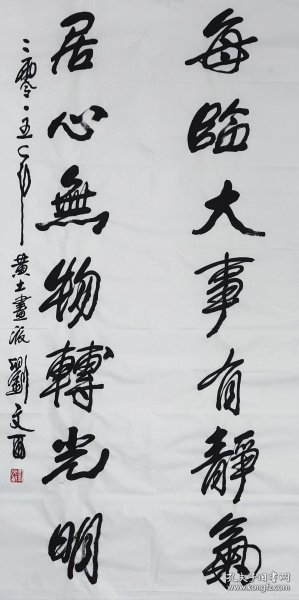 每臨大事有靜氣
居心無物轉光明
二零一五年 黄土畫派 劉文西
孔夫子旧书网